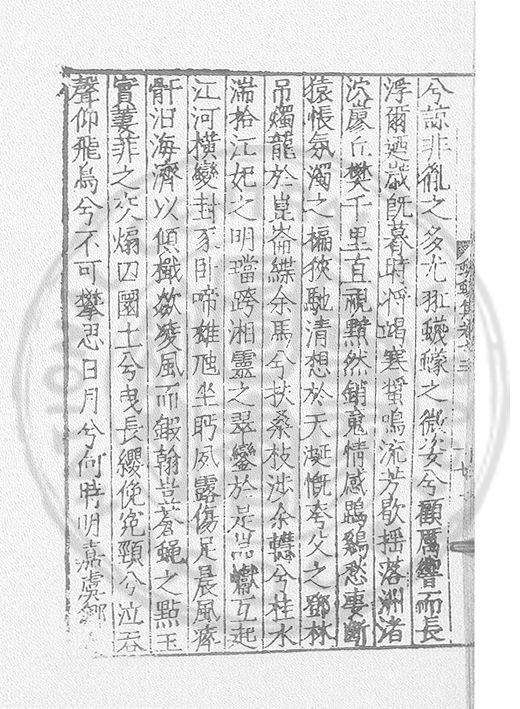 兮諒非徒之多尤羽蠛蠓之微姿兮顧厲響而長
浮爾廼歲旣暮時將竭寒螿鳴流芳歇揺落洲渚
泬寥丘樊千里直視黯然銷䰟情感鵾鷄愁萋斷
猿悵氛濁之褊狹馳清想於天涯慨夸父之鄧林
吊燭龍於崑崙緤余馬兮扶桑枝涉余轊兮桂水
湍拾江妃之明璫跨湘靈之翠鑾於是 巘互起
江河橫變封豕卧啼雄虺坐眄夙露傷足晨風瘁
骭汨海濟以傾檝欻凌風而鎩翰豈蒼蝇之點玉
實萋菲之交煽囚國士兮曳長纓俛寃頸兮泣吞
聲仰飛鳥兮不可攀思日月兮何時明嘉虞卿